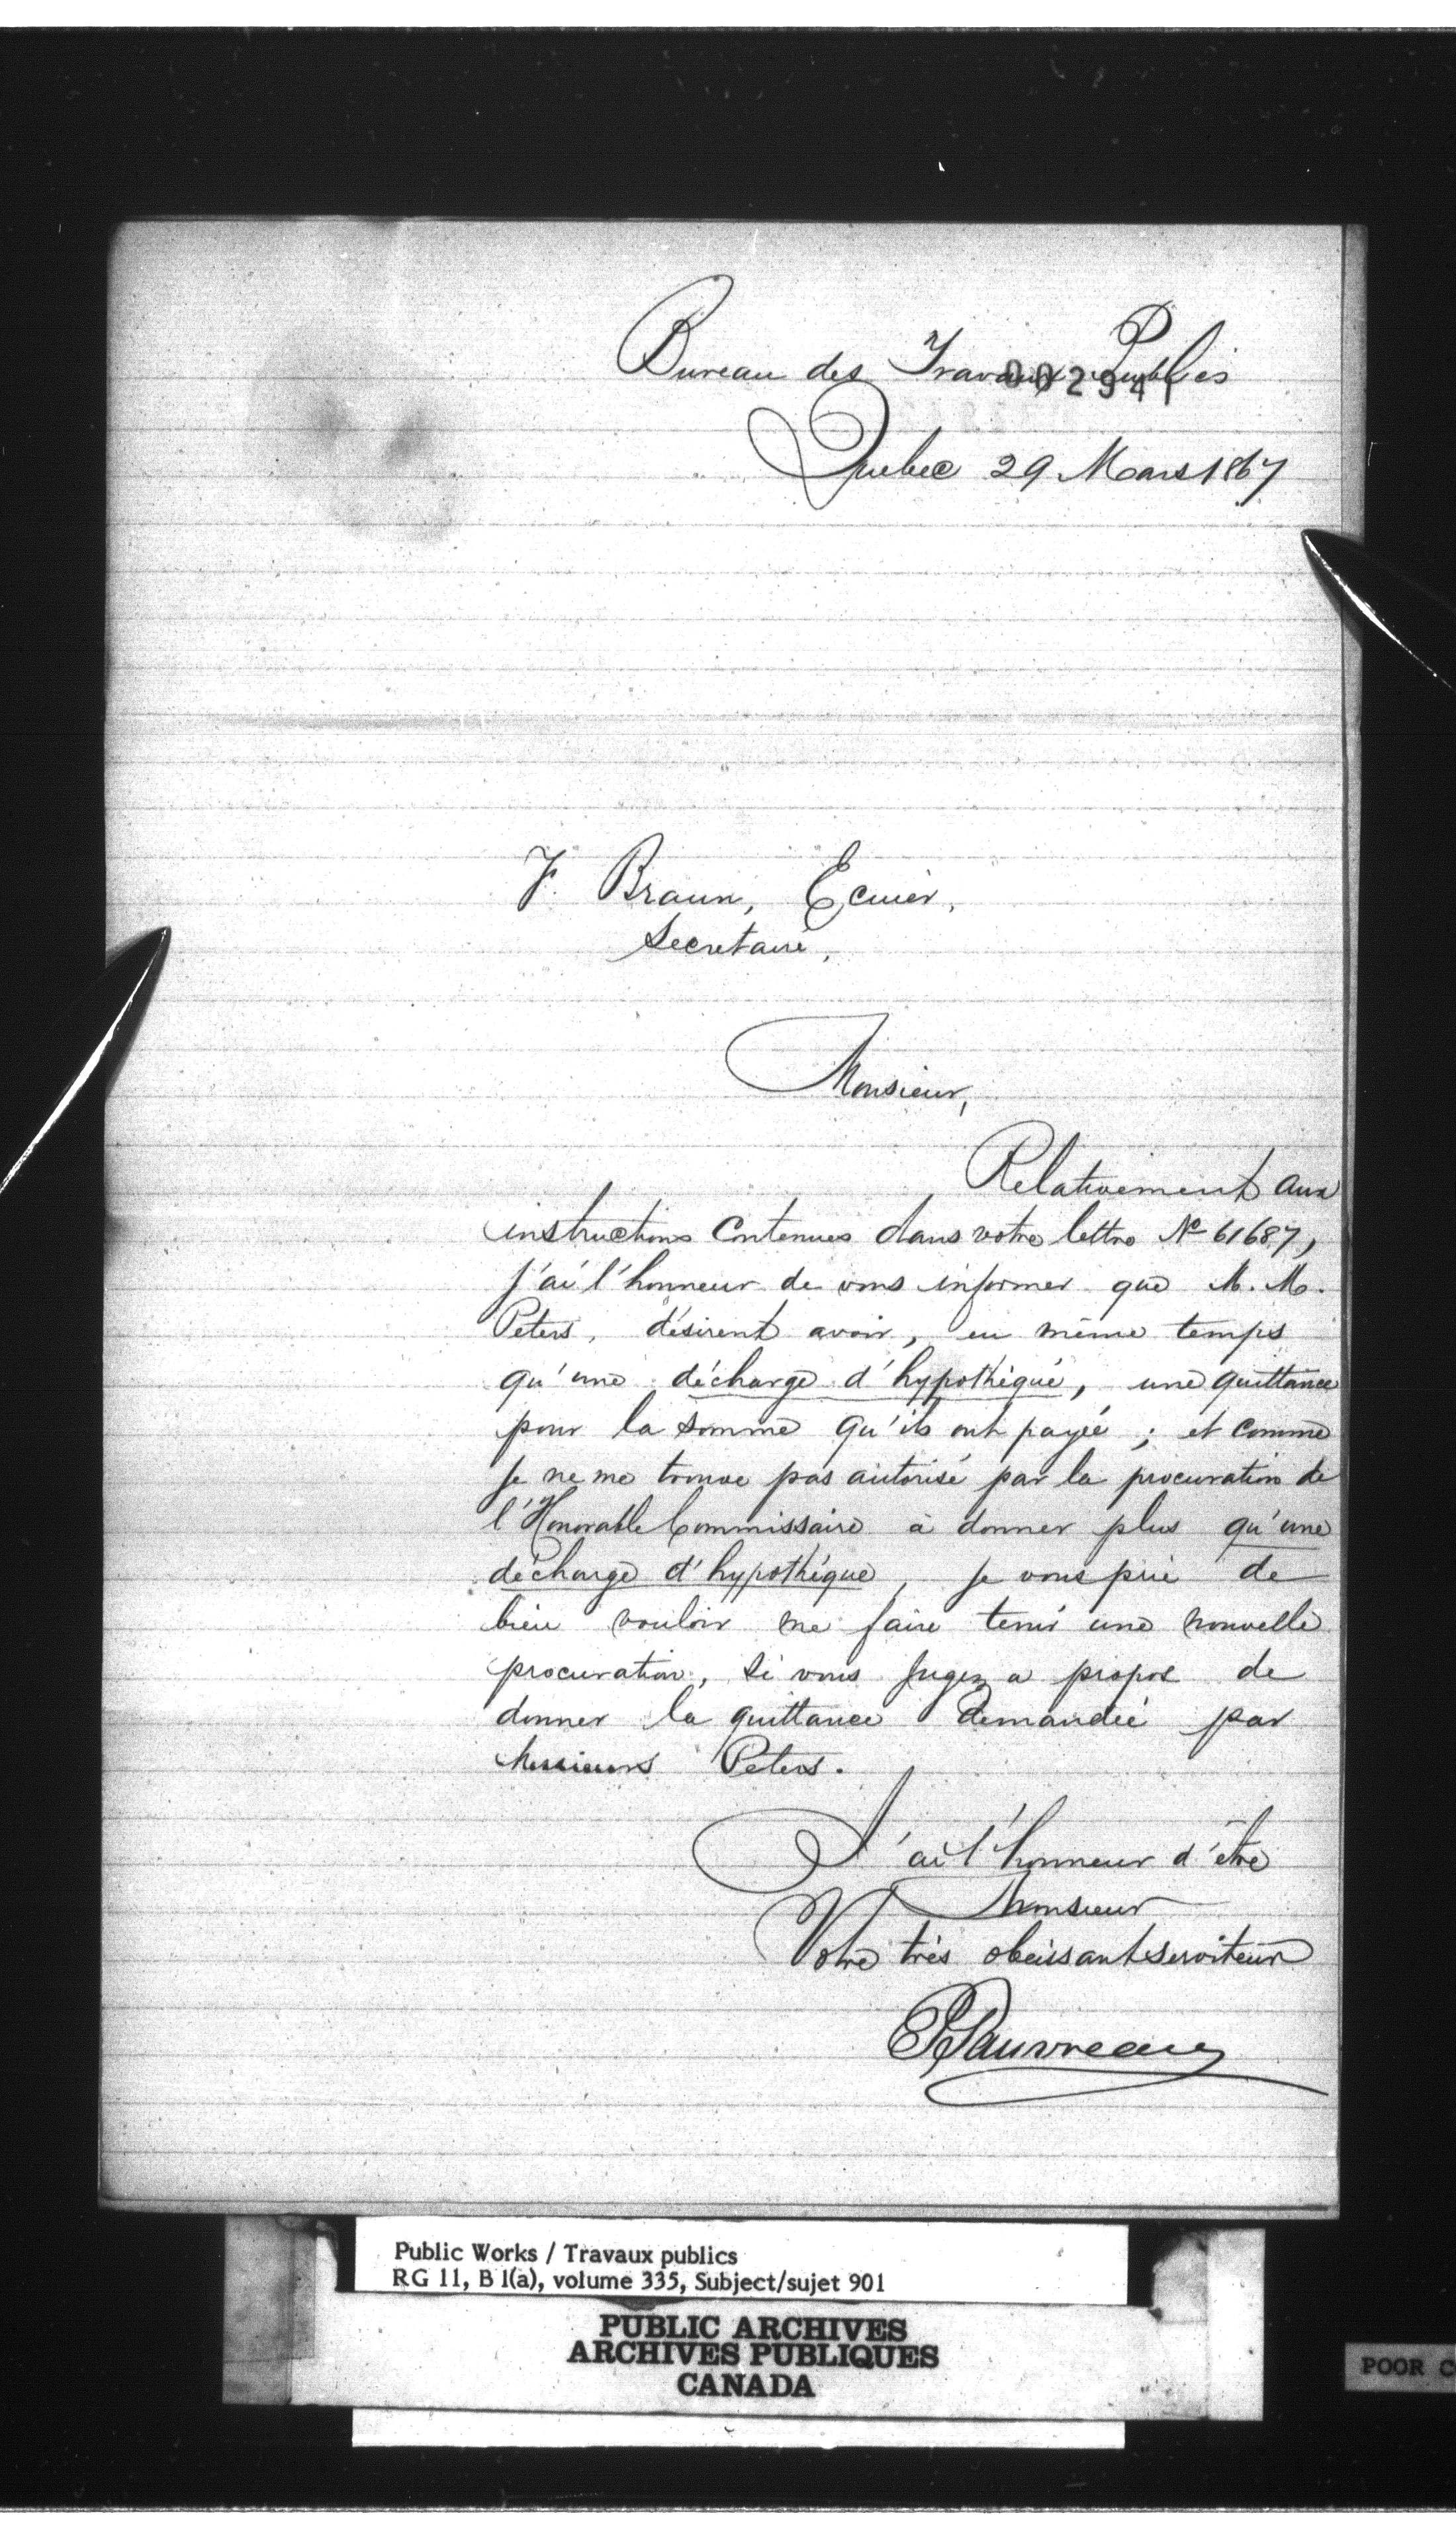 Bureau des Travaux Publics
002941
Quebec 29 Mars 1867
F. Braun, Ecuier,
Secretaire,
Monsieur,
Relativement aux
instructions contenues dans votre lettre No 61687,
j'ai l'honneur de vous informer que M. M.
Peters, désirent avoir, en même temps
qu'une décharge d'hypothèque, une quittance
pour la somme qu'ils ont payée ; et comme
je ne me trouve pas autorisé par la procuration de
l'Honorable Commissaire à donner plus qu'une
décharge d'hypothéque, je vous prie de
bien vouloir me faire tenir une nouvelle
procuration, si vous jugez a propos de
donner la quittance demandée par
Messieurs Peters.
J'ai l'honneur d'être
Monsieur
Votre très obeissant serviteur
Gauvreau
Public Works / Travaux publics
RG 11, B 1(a), volume 335, Subject/sujet 901
PUBLIC ARCHIVES
ARCHIVES PUBLIQUES
CANADA
POOR C